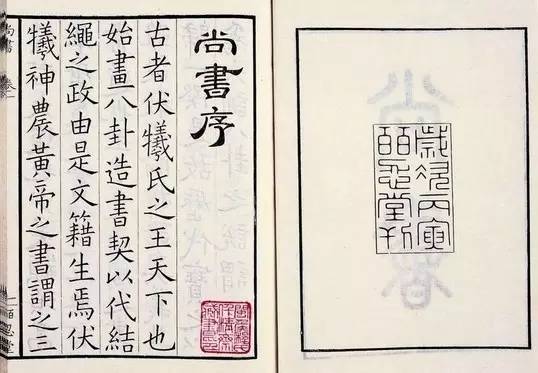 歲次丙寅
百忍堂刊
尚書序
古者伏犧氏之王天下也
始畫八卦造書契以代結
繩之政由是文籍生焉伏
犧神農黃帝之書謂之三
尚書 卷一
百忍堂